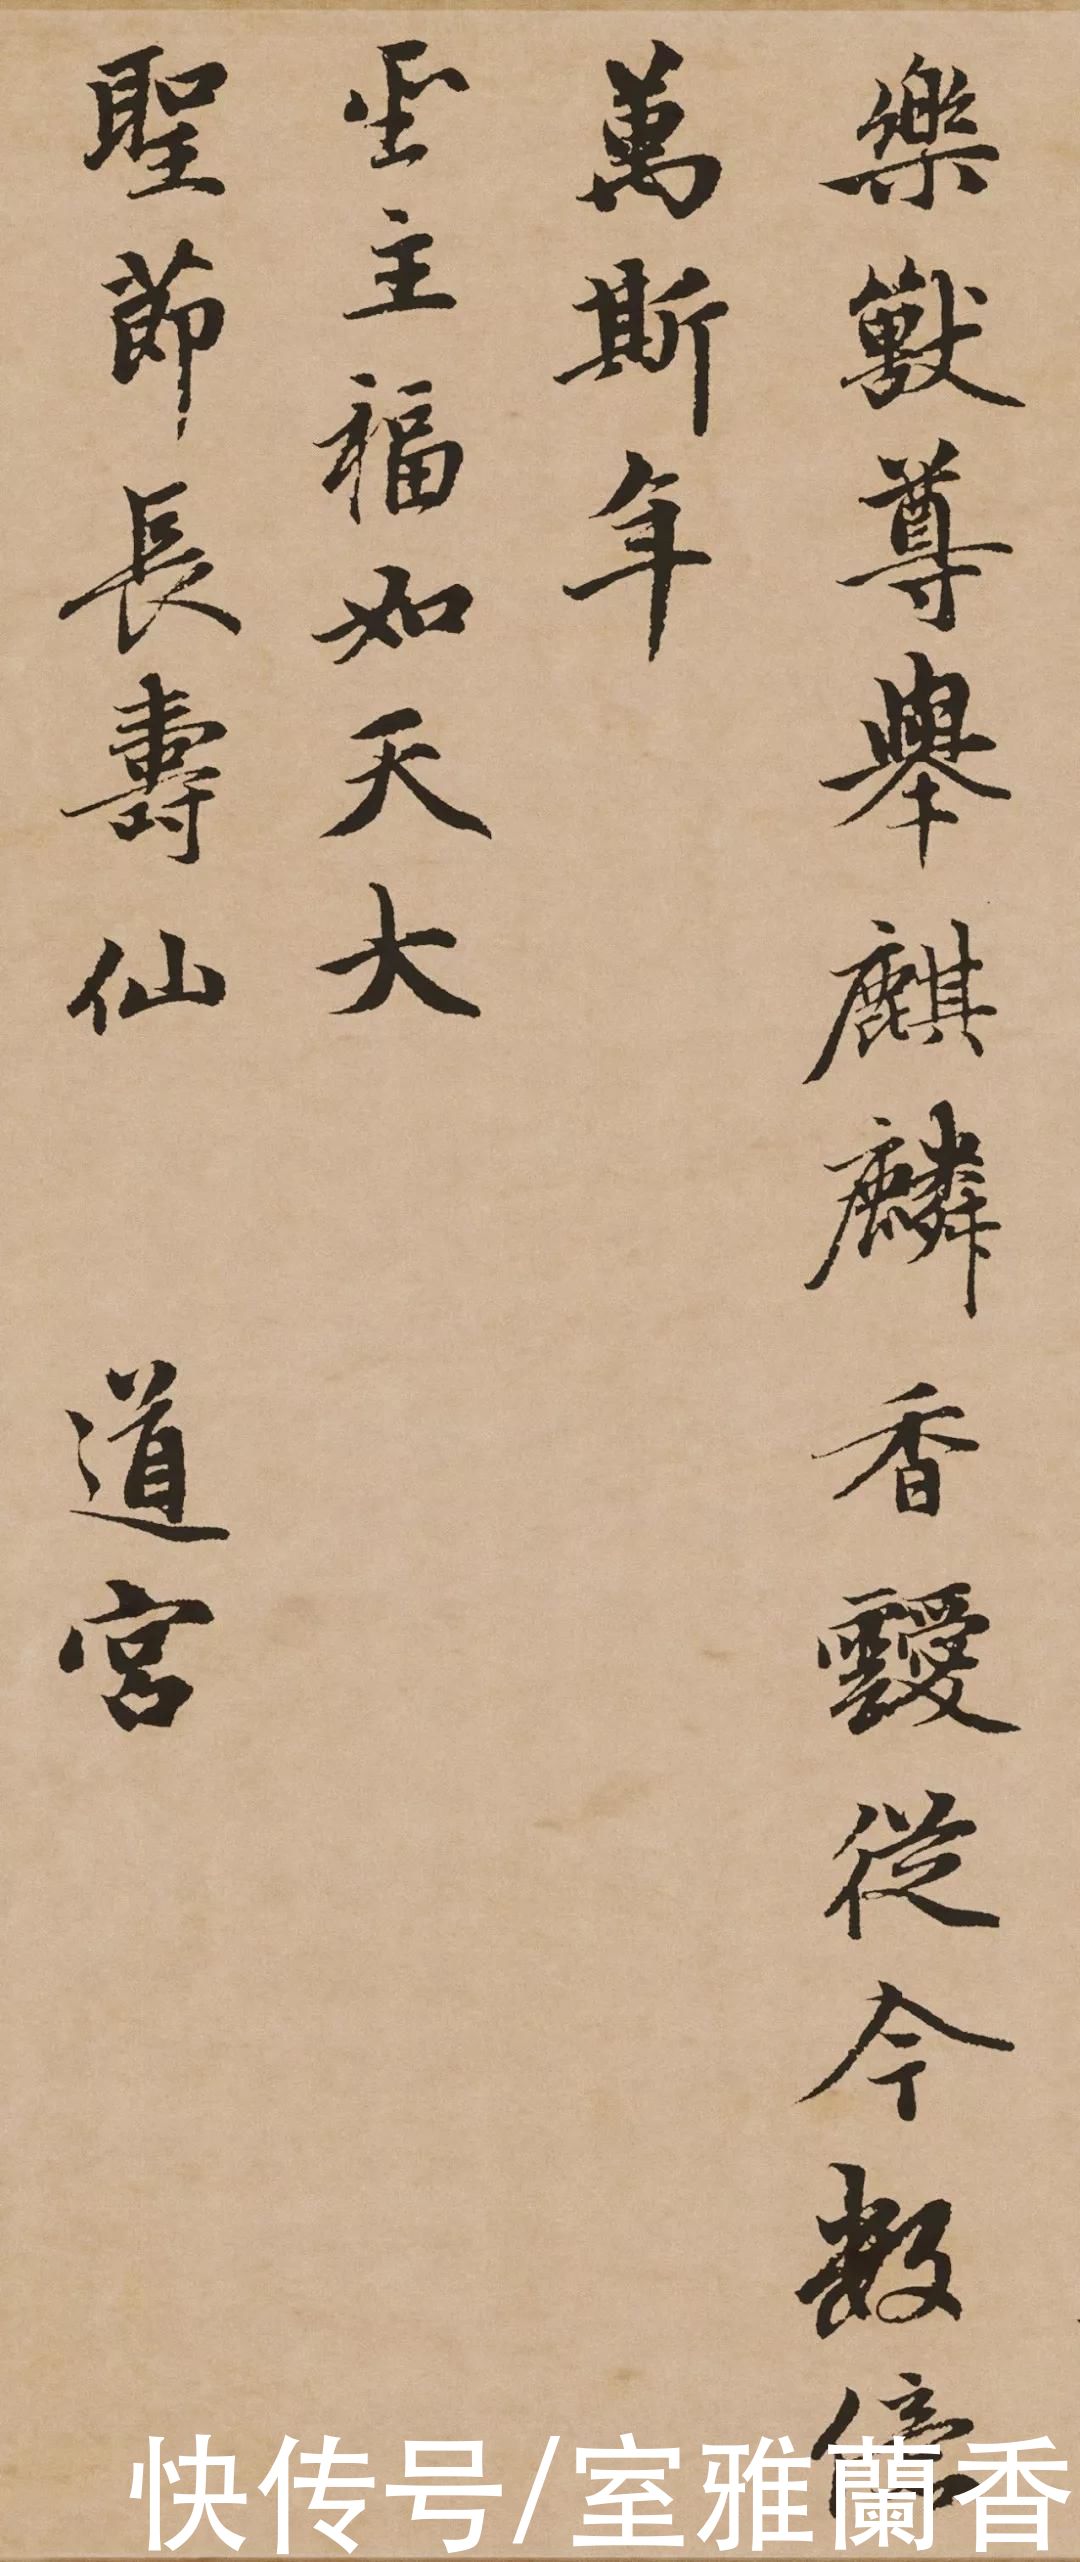 樂獸尊舉麒麟香靉從今數倍
萬斯年
主福如天大
聖節長壽仙 道宮
快传号/室雅蘭香